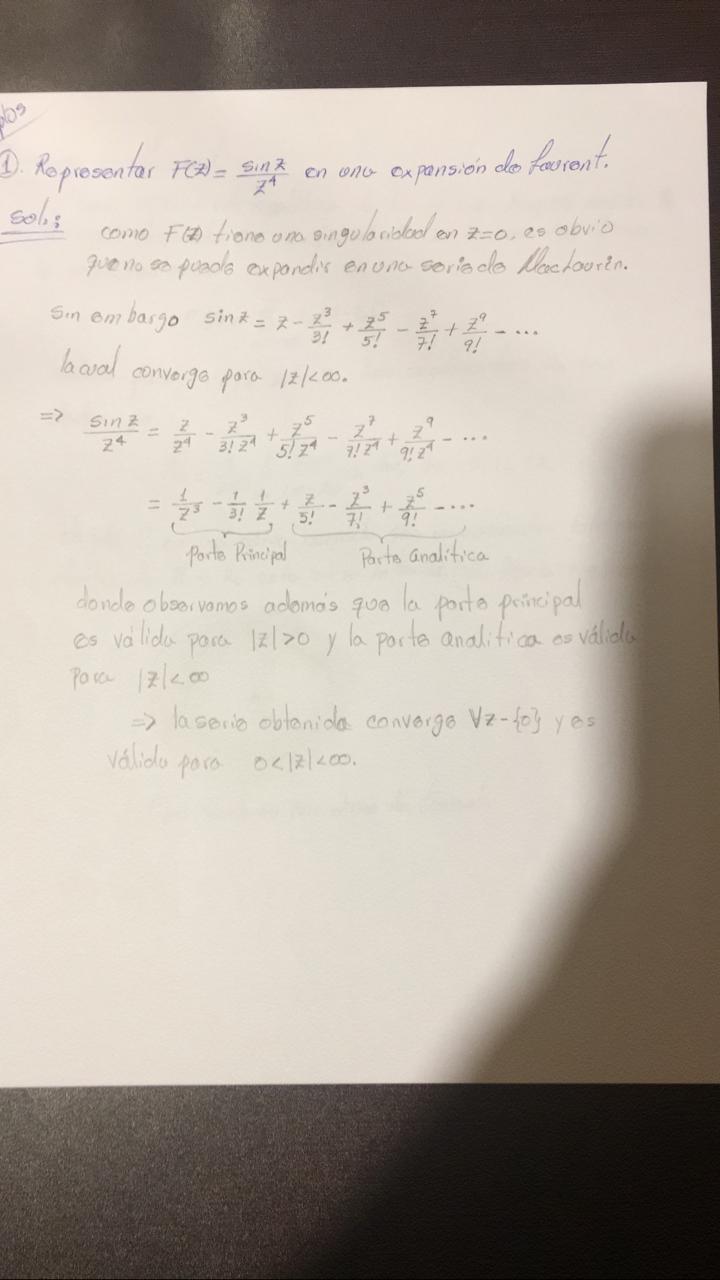 ①. Representar F(z) = sin z / z⁴ en una expansión de Laurent.
Sol.:
como F(z) tiene una singularidad en z=0, es obvio
que no se puede expandir en una serie de Maclaurin.
Sin embargo sin z = z - z³/3! + z⁵/5! - z⁷/7! + z⁹/9! - ...
la cual converge para |z|<∞.
=> sin z / z⁴ = z/z⁴ - z³/3!z⁴ + z⁵/5!z⁴ - z⁷/7!z⁴ + z⁹/9!z⁴ - ...
= 1/z³ - 1/3! 1/z + z/5! - z³/7! + z⁵/9! - ...
Parte Principal Parte Analítica
donde observamos además que la parte principal
es válida para |z|>0 y la parte analítica es válida
para |z|<∞
=> la serie obtenida converge ∀z-{0} y es
válida para 0<|z|<∞.